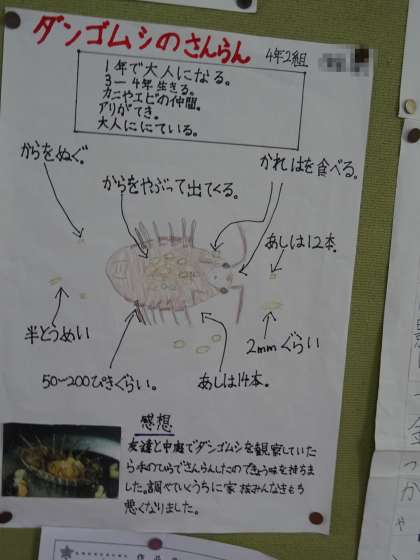 ダンゴムシのさんらん
4年2組
1年で大人になる。
3－4年生きる。
カニやエビの仲間。
アリがてき。
大人ににている。
からをぬぐ。
からをやぶって出てくる。
かれはを食べる。
あしは12本。
半とうめい
2mmぐらい
50~200ぴきぐらい。
あしは14本。
感想
友達と中庭でダンゴムシを観察していた
ら手のひらでさんらんしたのできょう味を持ちま
した。調べていくうちに家族みんなきもち
悪くなりました。